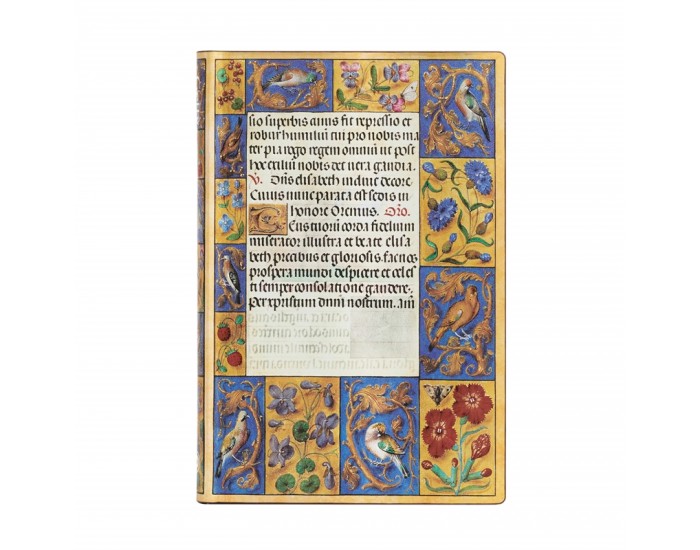 sio superbis cuius fit repressio et
robur humiliū cui pro nobis ma
ter pia rogo regem omniū ut post
hoc exiliū nobis det vera gaudia.
V. Dn̄s elisabeth induit decore
Cuius nunc parata est sedis in
honore Oremus. Oro.
miserator illustra et beate elisa
beth precibus et gloriosis fac nos
prospera mundi despicere et celes
ti semper consolatione gaudere.
Per xp̄istum dnm nostrum. am̄